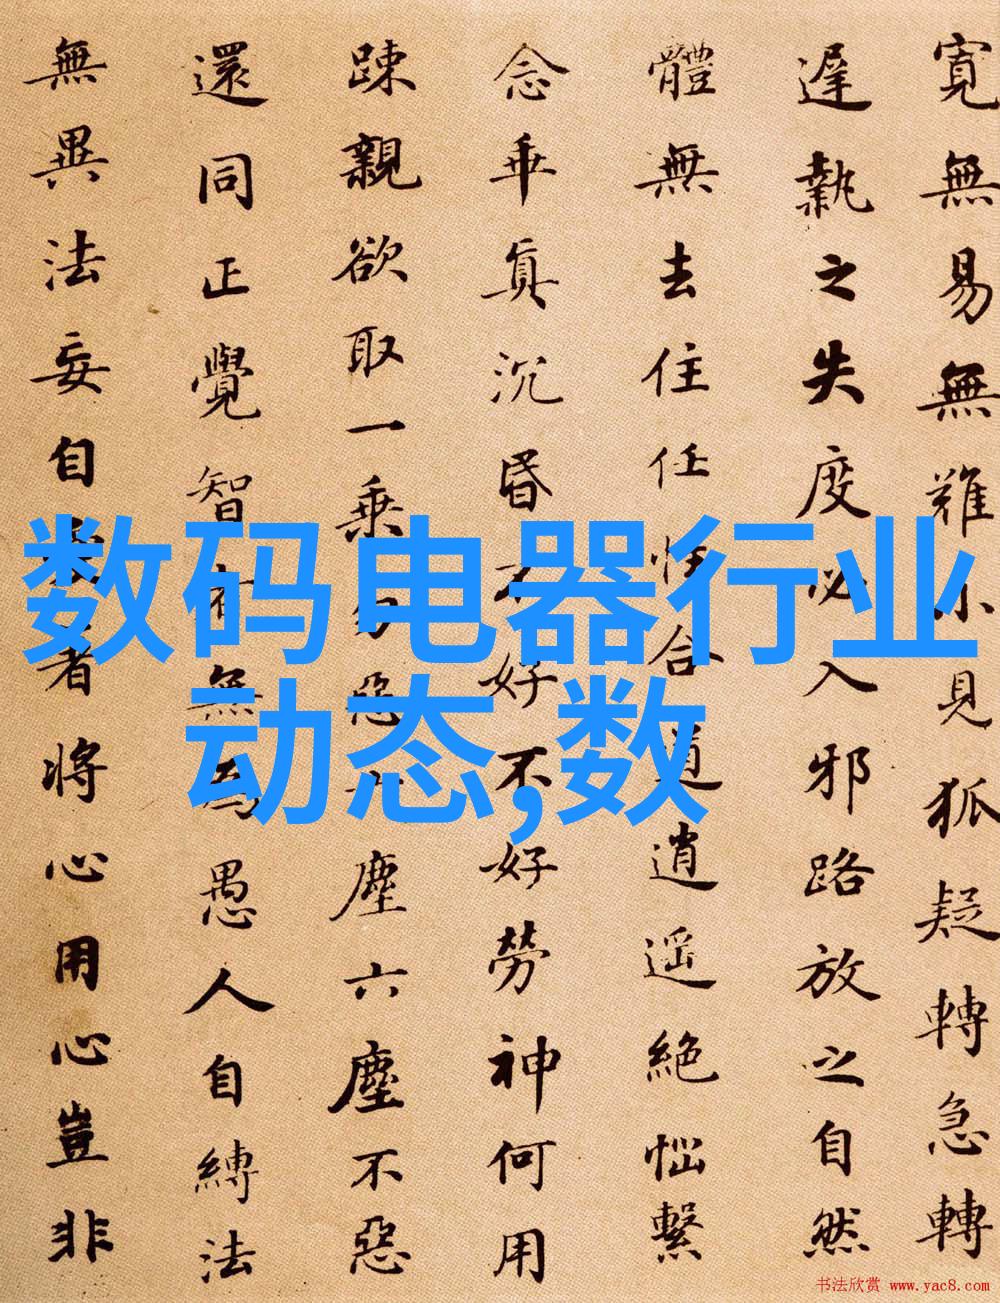 寬無易無難小見狐疑轉急轉
遲執之失度必入邪路放之自然
體無去住任性合道逍遙絕惱繫
念乖真沉昏不好不好勞神何用
踈親欲取一乘勿惡六塵六塵不惡
還同正覺智者無為愚人自縛法
無異法妄自愛著將心用心豈非
数码电器行业
动态,数
书法欣赏 www.yac8.com